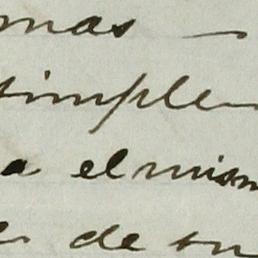 mas —
simple
a el mism
de su